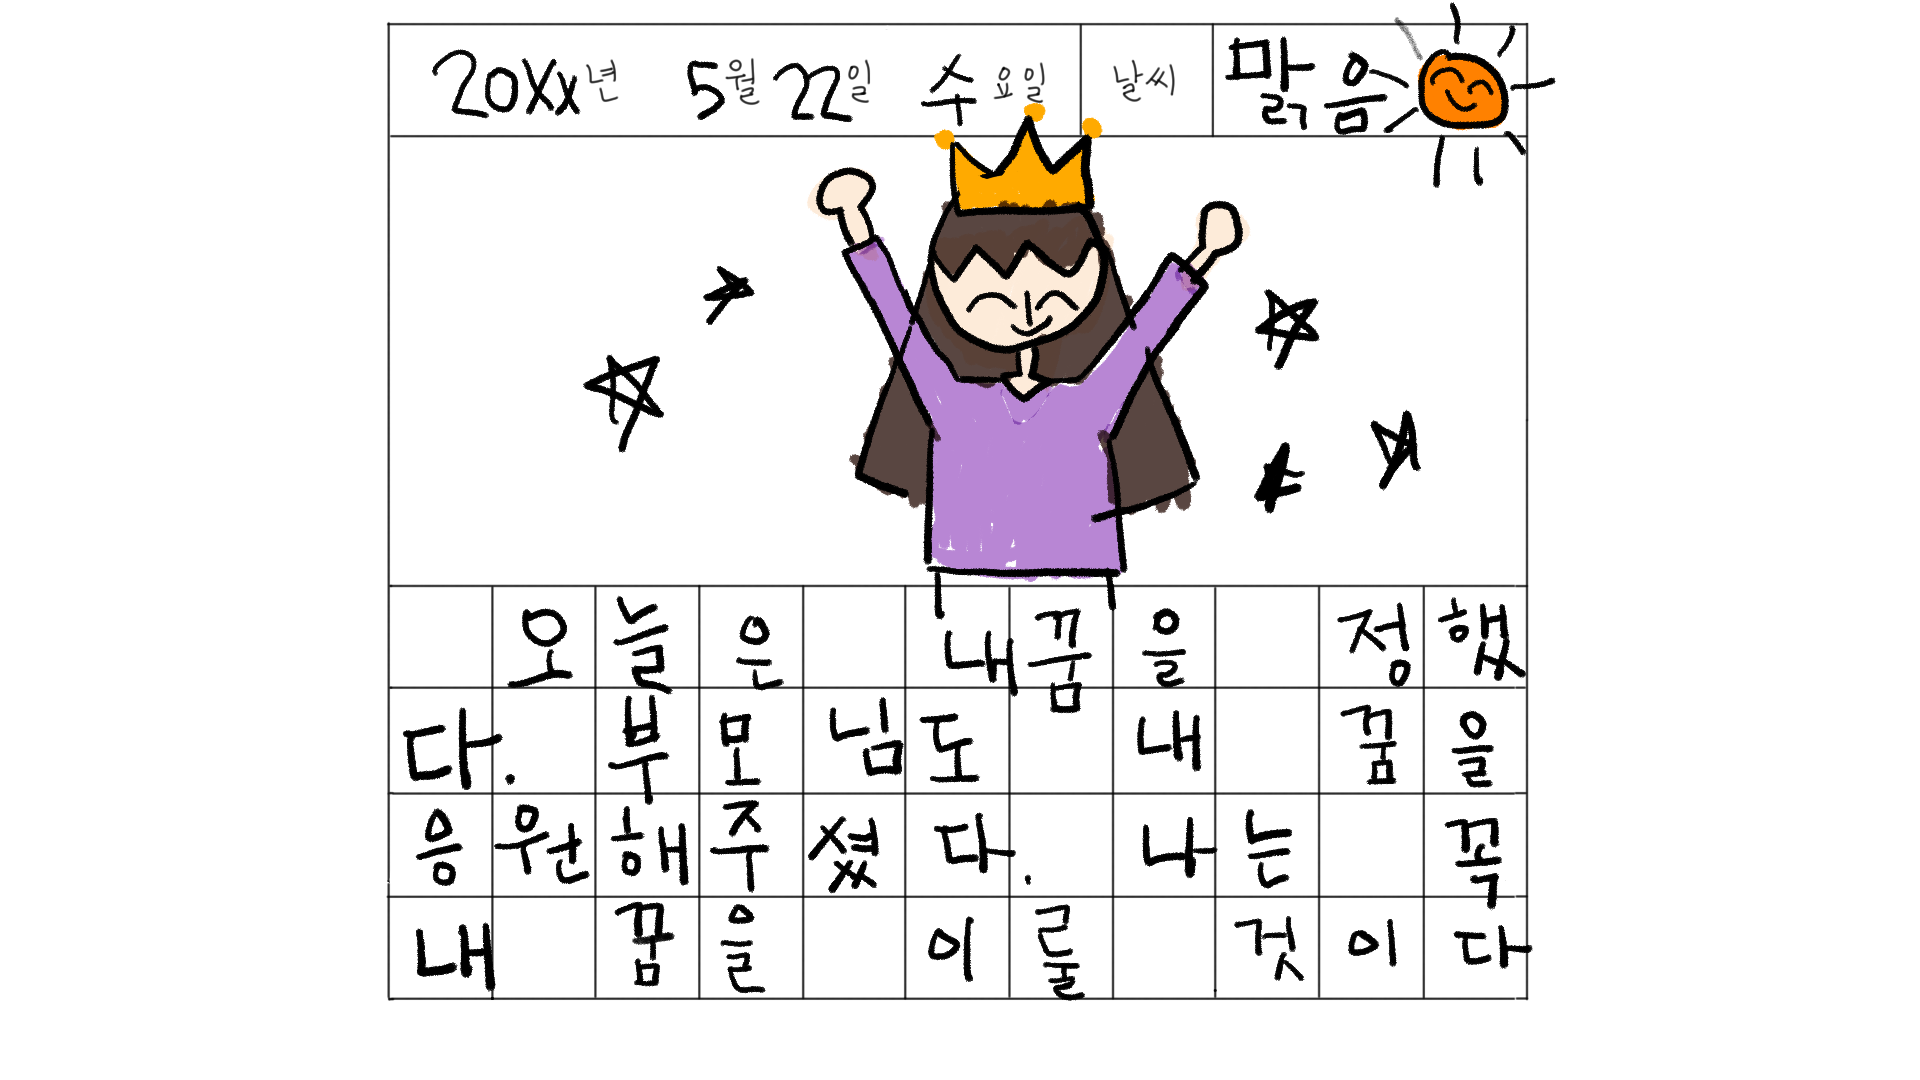 20XX년 5월 22일 수요일 날씨 맑음
오늘은 내꿈을 정했
다. 부모님도 내 꿈을
응원해주셨다. 나는 꼭
내 꿈을 이룰 것이다